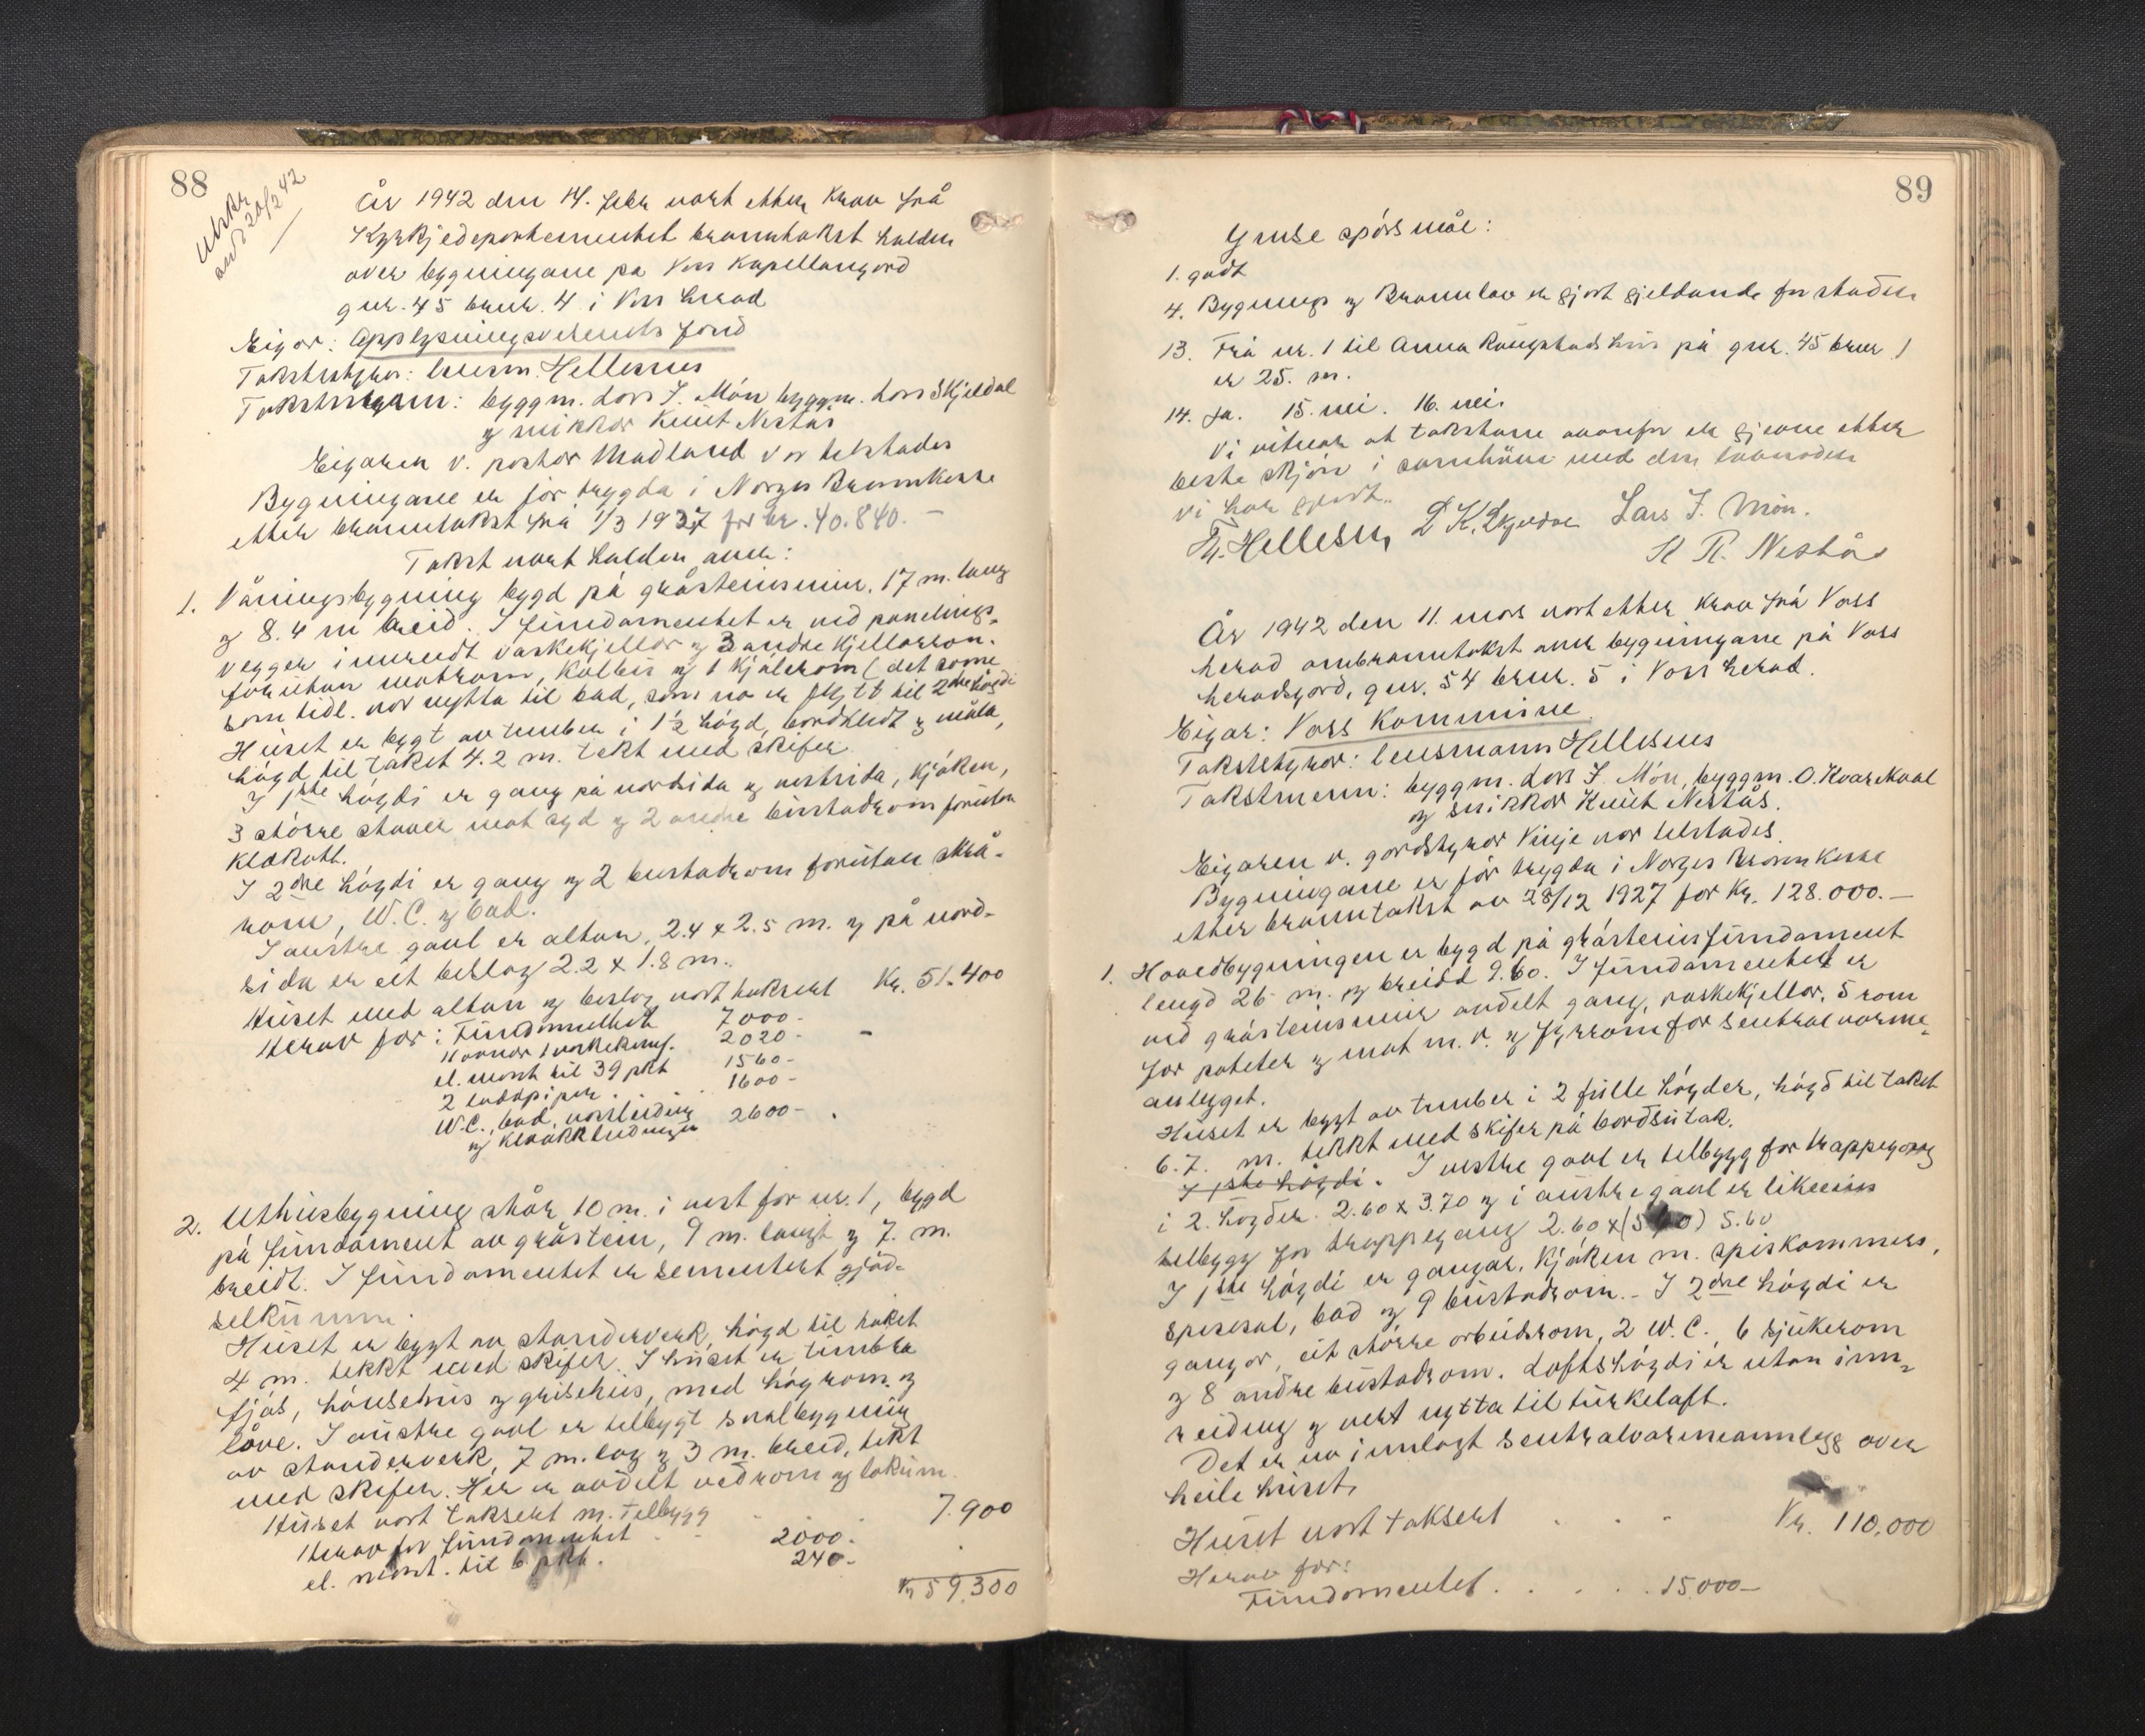 88
Utskr
av d 20/2 42
År 1942 den 14. febr vart etter krav frå
Kyrkjedepartementet branntakst halden
over bygningane på Voss Kapellangard
gnr. 45 brnr. 4 i Voss herad
Eigar: Opplysningsvesenets fond
Takststyrar: lensm. Hellesnes
Takstmenn: byggm. Lars J. Møn byggm. Lars Skjeldal
og snikkar Knut Nestås
Eigaren v. pastor Madland var tilstades
Bygningane er før trygda i Norges Brannkasse
etter branntakst frå 1/3 1937 for kr. 40.840.-
Takst vart halden over:
1. Våningsbygning bygd på gråsteinsmur. 17 m. lang
og 8.4 m breid. I fundamentet er ved panelings-
vegger innreidt vaskekjellar og 3 andre kjellarrom.
forutan matrom, kolbu og 1 kjølerom (det same
som tidl. var nytta til bad, som no er flytt til 2dre høgdi
Huset er bygt av tømber i 1½ høgd, bordkledt og måla,
høgd til taket 4.2 m. tekt med skifer
I 1ste høgdi er gang på nordsida og vestsida, kjøken,
3 større stover mot syd og 2 andre bustadrom forutan
klækott.
I 2dre høgdi er gang og 2 bustadrom forutan skrå-
rom, W.C. og bad.
I austre gavl er altan, 2.4 x 2.5 m. og på nord-
sida er eit beslag 2.2 x 1.8 m.
Huset med altan og beslag vart taksert Kr. 51.400
Herav for: Fundamentet 7000-
1 vaskekum. 2020- -
el. mont til 39 pkt 1560-
2 luftpiper . . 1600-
W.C., bad, vassleiding
og kloakkleidningen 2600- .
2. Uthusbygning står 10 m. i vest for nr. 1, bygd
på fundament av gråstein, 9 m. langt og 7. m.
breidt. I fundamentet er sementert gjød-
selkum.
Huset er bygt av standerverk, høgd til taket
4 m. tekkt med skifer. I huset er timbra
fjøs, hønsehus og grisehus, med høyrom og
låve. I austre gavl er tilbygt svalbygning
av standerverk, 7 m. lag og 3 m. breid, tekt
med skifer. Her er avdelt vedrom og lokum.
Huset vart taksert m. tilbygg - - 7.900
Herav for fundamentet - - 2000.-
el. mont. til 6 pkt. 240.-
Kr 59.300
89
Ymse spørsmål:
1. godt
4. Bygnings og Brannlov er gjort gjeldande for staden
13. Frå nr. 1 til Anna Rongstads hus på gnr. 45 brnr 1
er 25. m.
14. Ja. 15. nei. 16. nei.
Vi vitnar at takstane ovanfor er gjevne etter
beste skjøn i samhøve med den lovnaden
vi har gjort.
Hellesnes L K. Skjeldal Lars J. Møn.
K R. Nestås
År 1942 den 11. mars vart etter krav frå Voss
herad ombranntakst over bygningane på Voss
heradsgard, gnr. 54 brnr. 5 i Voss herad.
Eigar: Voss Kommune
Takststyrar: lensmann Hellesnes
Takstmenn: byggm. Lars J. Møn, byggm. O. Kvarekval
og snikkar Knut Nestås.
Eigaren v. gardstyrar Vinje var tilstades.
Bygningane er før trygda i Norges Brannkasse
etter branntakst av 28/12 1927 for Kr. 128.000.-
1. Hovedbygningen er bygd på gråsteinsfundament
lengd 26 m. og breidd 9.60. I fundamentet er
ved gråsteinsmur avdelt gang, vaskekjellar, 5 rom
for poteter og mat m. v. og fyrrom for sentralvarme-
anlegget.
Huset er bygt av tømber i 2 fulle høgder, høgd til taket
6.7. m. tekkt med skifer på bordsutak.
I 1ste høgdi. I vestre gavl er tilbygg for trappegang
i 2. høgder. 2.60 x 3.70 og i austre gavl er likeeins
tilbygg for trappegang 2.60 x (5 0) 5.60
I 1ste høgdi er gangar, kjøken m. spiskammers,
spisesal, bad og 9 bustadrom.- I 2dre høgdi er
gangar, eit større arbeidsrom, 2 W.C. 6 sjukerom
og 8 andre bustadrom. Loftshøgdi er utan inn-
reiding og vert nytta til turkeloft.
Det er no innlagt sentralvarmeanlegg over
heile huset.
Huset vart taksert . . - Kr. 110.000
Herav for:
Fundamentet . . . . . 15.000-